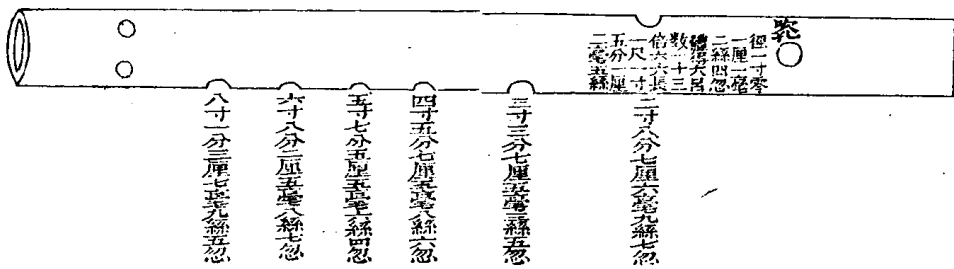 徑一寸零
一厘一毫
二絲四忽
體得大呂
数二十三
倍六六長
一尺一寸
五分一厘
二毫五絲
二寸八分七厘六毫九絲七忽
三寸三分七厘五毫三絲五忽
四寸五分七厘五毫八絲六忽
五寸七分五厘五毫六絲四忽
六寸八分二厘五毫八絲七忽
八寸一分三厘七毫九絲五忽